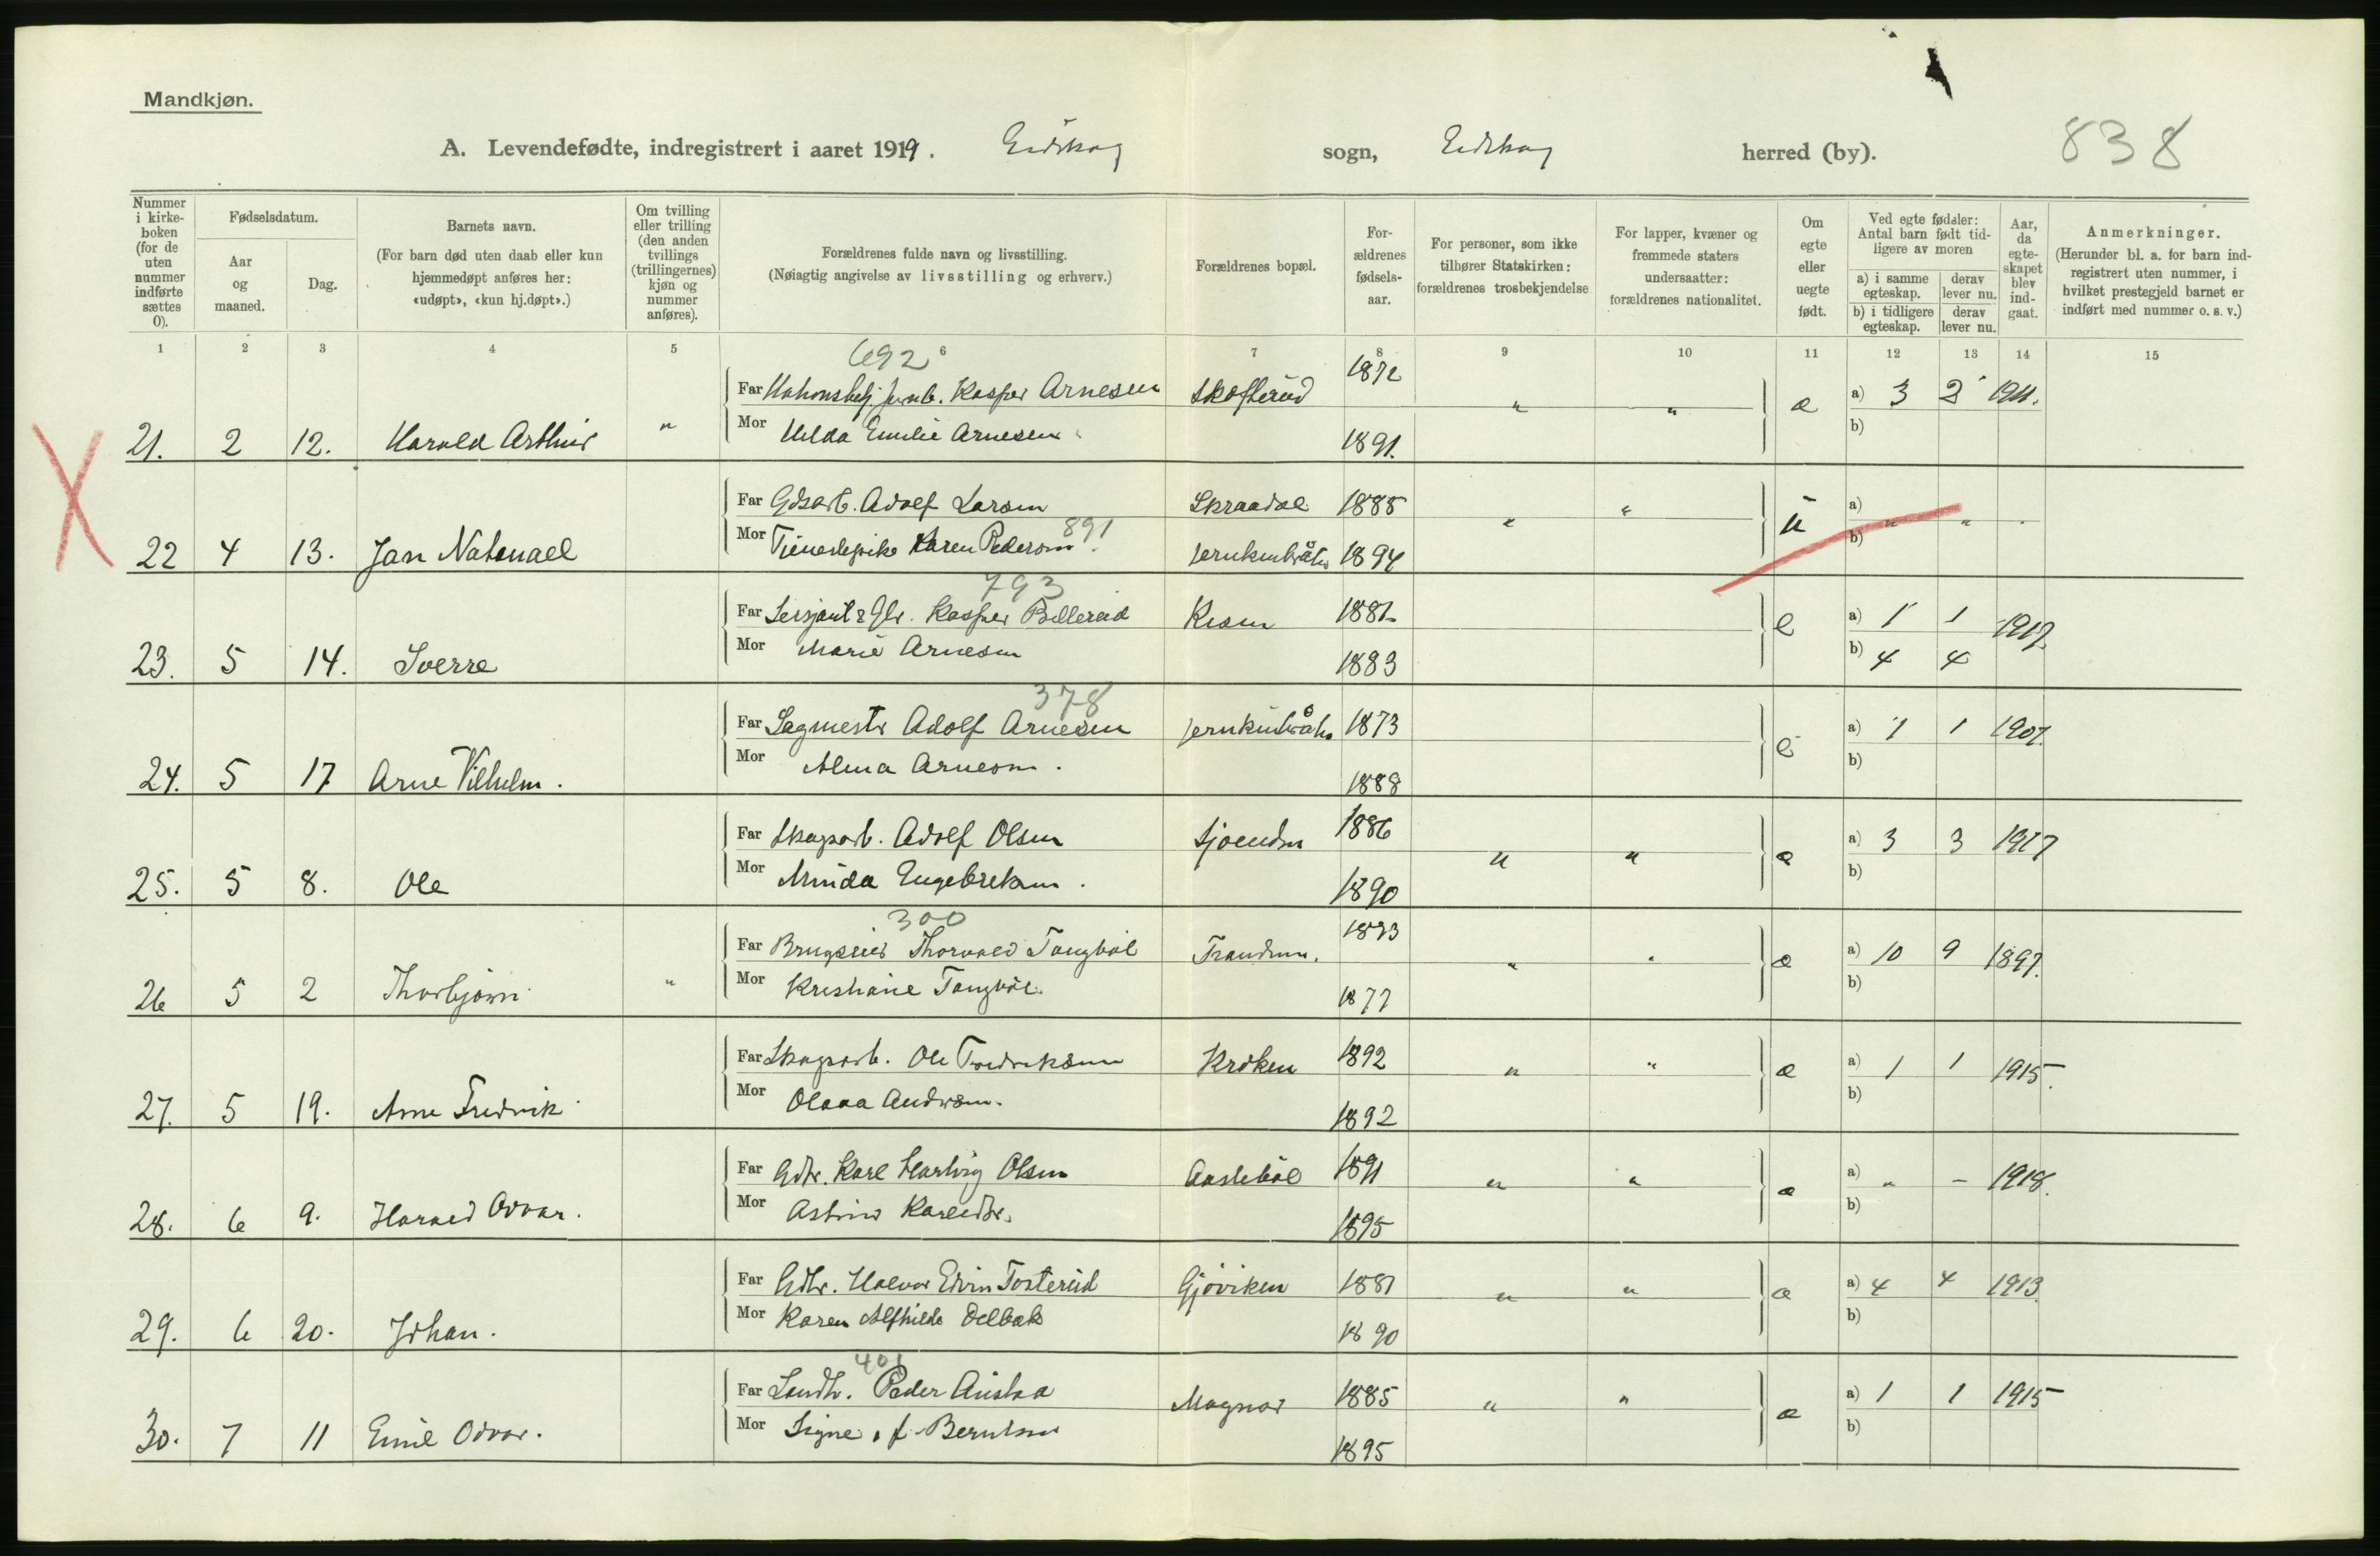 Mandkjøn.
A. Levendefødte, indregistrert i aaret 1919. Eidskog sogn, Eidskog herred (by). 838
Nummer i kirke-boken (for de uten nummer indførte sættes 0).
Fødselsdatum.
Aar og maaned.
Dag.
Barnets navn.
(For barn død uten daab eller kun hjemmedøpt anføres her: «udøpt», «kun hj.døpt».)
Om tvilling eller trilling (den anden tvillings (trillingernes) kjøn og nummer anføres).
Forældrenes fulde navn og livsstilling.
(Nøiagtig angivelse av livsstilling og erhverv.)
Forældrenes bopæl.
For-ældrenes fødsels-aar.
For personer, som ikke tilhører Statskirken: forældrenes trosbekjendelse
For lapper, kvæner og fremmede staters undersaatter: forældrenes nationalitet.
Om egte eller uegte født.
Ved egte fødsler: Antal barn født tid-ligere av moren
a) i samme egteskap. derav lever nu.
b) i tidligere egteskap. derav lever nu.
Aar, da egte-skapet blev ind-gaat.
Anmerkninger.
(Herunder bl. a. for barn ind-registrert uten nummer, i hvilket prestegjeld barnet er indført med nummer o. s. v.)
1 2 3 4 5 6 7 8 9 10 11 12 13 14 15
692
Far Kasper Arnesen Skofterud 1872 " " e a) 3 2 1911.
21. 2 12. Harald Arthur " Mor Hilda Emilie Arnesen 1891. b)
Far Gdsarb. Adolf Larsen Skraadal 1885 " " u a) " " -
22 4 13. Jan Natanael Mor Tjenestepike Karen Pedersen 891 1894 b)
793
Far Sersjant & Gbr. Kasper Bellerud 1881 e a) 1 1 1917.
23. 5 14. Sverre Mor Marie Arnesen 1883 b) 4 4
378
Far Sagmestr Adolf Arnesen 1873 e a) 1 1 1907.
24. 5 17 Arne Vilhelm. Mor Alma Arnesen. 1888 b)
Far Skogsarb. Adolf Olsen 1886 " " e a) 3 3 1917
25. 5 8. Ole Mor Minda Engebretsen. 1890 b)
300
Far Brugseier Thorvald Tangbøl Trandum. " " e a) 10 9 1897.
26 5 2 Thorbjørn " Mor Kristiane Tangbøl. 1877 b)
Far Skogsarb. Ole Fredriksen Kroken 1892 " " e a) 1 1 1915.
27. 5 19. Arne Fredrik Mor Olava Andersen. 1892 b)
Far Gdbr. Karl Hartvig Olsen 1891 " " e a) " - 1918.
28. 6 9. Harald Odvar. Mor Astrid 1895 b)
Far Gdbr. Halvor Edvin Tosterud Gjøviken 1881 " " e a) 4 4 1913.
29. 6 20. Johan. Mor Karen Alfhilde Delbak 1890 b)
401
Far Landh. Peder Austad Magnor 1885 " " e a) 1 1 1915
30. 7 11 Emil Odvar. Mor Signe f. Berntsen 1895 b)